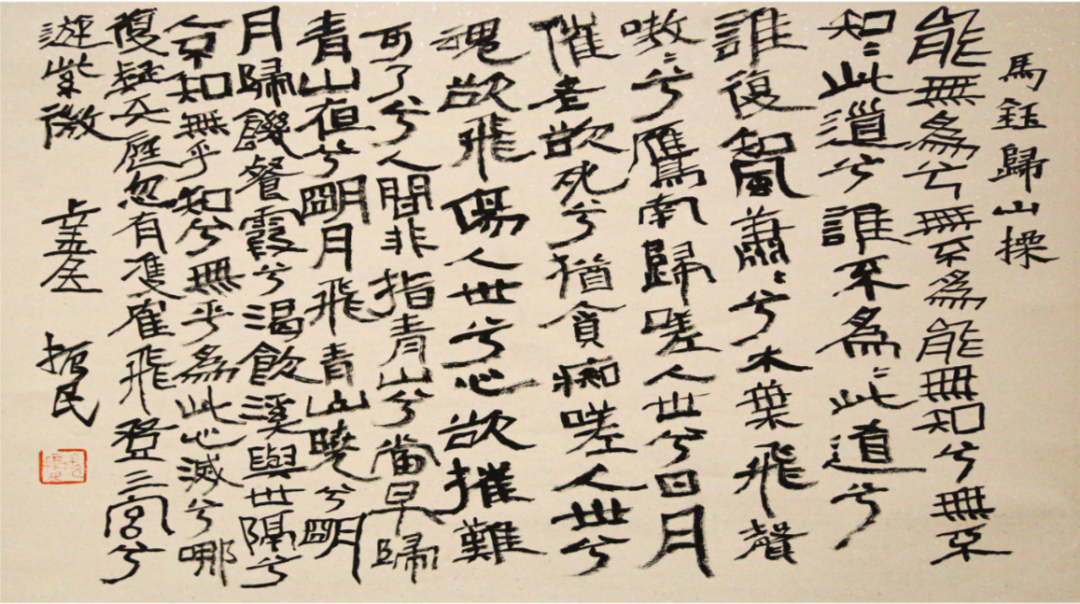 馬鈺歸山操
能無為兮無不為能無知兮無不
知〻此道兮誰不為〻此道兮
誰復知風蕭〻兮木葉飛聲
嗷〻兮鷹南歸嗟人世兮日月
催老欲死兮猶貪痴嗟人世兮
魂欲飛傷人世兮心欲摧難
可了兮人間非指青山兮當早歸
青山夜兮明月飛青山曉兮明
月歸饑餐霞兮渴飲溪與世隔兮
人不知無乎知兮無乎為此心滅兮哪
復疑天庭忽有隻隺飛登三宮兮
遊紫微
振民